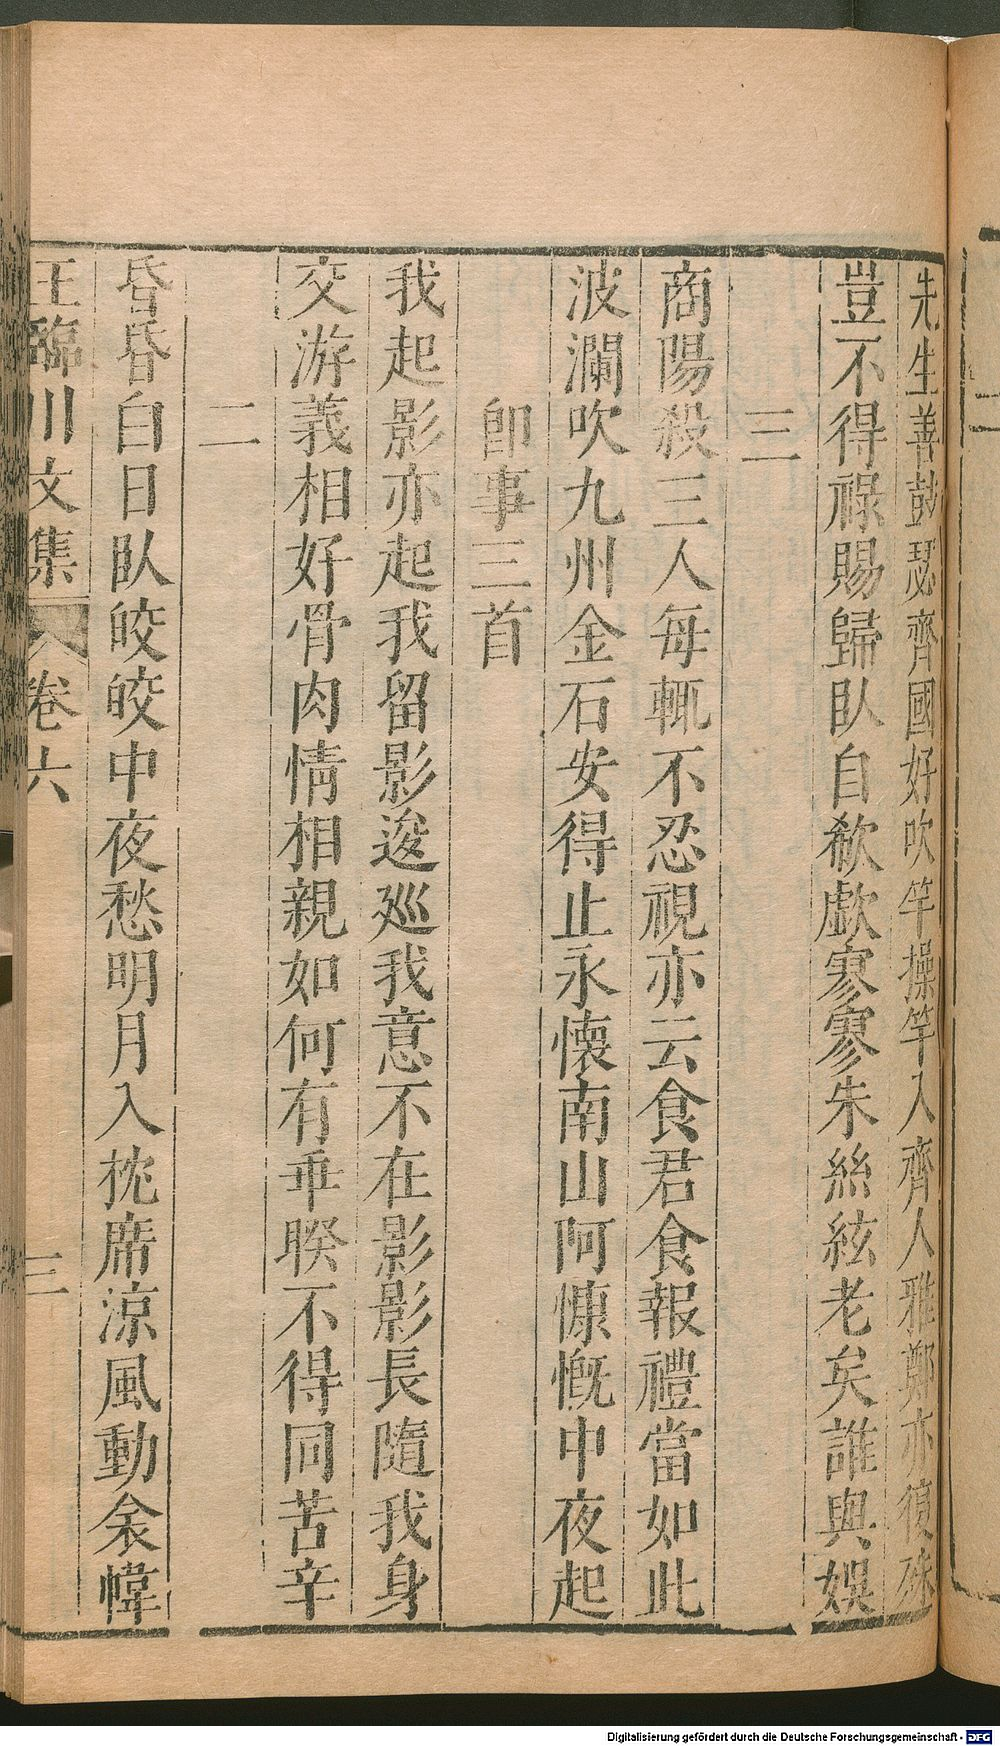 二
先生善鼓瑟齊國好吹竽操竽入齊人雅鄭亦復殊
豈不得祿賜歸臥自欷歔寥寥朱絲絃老矣誰與娛
三
商陽殺三人每輒不忍視亦云食君食報禮當如此
波瀾吹九州金石安得止永懷南山阿慷慨中夜起
卽事三首
我起影亦起我留影逡廵我意不在影影長隨我身
交游義相好骨肉情相親如何有乖睽不得同苦辛
二
昏昏白日臥皎皎中夜愁明月入枕席涼風動衾幃
王臨川文集 卷六 三
Digitalisierung gefördert durch die Deutsche Forschungsgemeinschaft - DFG